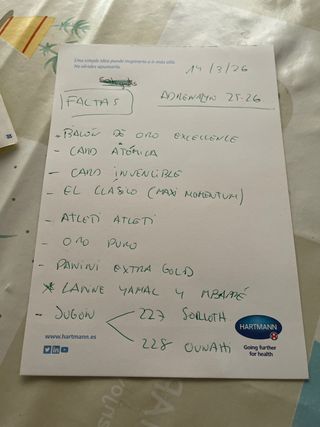 Una simple idea puede inspirarte a ir más allá.
No olvides apuntarla.
14/3/26
FALTAS
ADRENALYN 25-26
- BALÓN DE ORO EXCELLENCE
- CARD ATÓMICA
- CARD INVENCIBLE
- EL CLÁSICO (MAXI MOMENTUM)
- ATLETI ATLETI
- ORO PURO
- PANINI EXTRA GOLD
* LAMINE YAMAL Y MBAPPÉ
- JUGON
227 SORLOTH
228 OUNAHI
www.hartmann.es
HARTMANN
Going further
for health